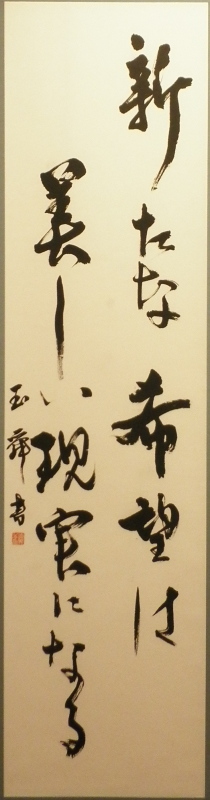 新たな希望は
美しい現実になる
玉舜書